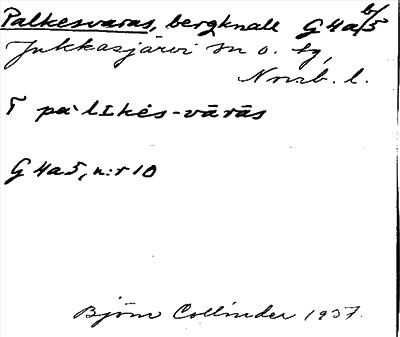 Palkesvaras, bergknalle G4a b/5
Jukkasjärvi sn o. tg,
Norrb. l.
T pa·lIkės-vārās
G4a5, n:r 10
Björn Collinder 1937.